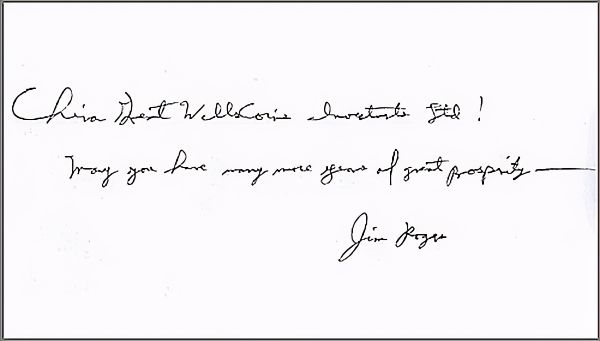 China Best Wells Investments Ltd!
May you have many more years of great prosperity —
Jim Rogers